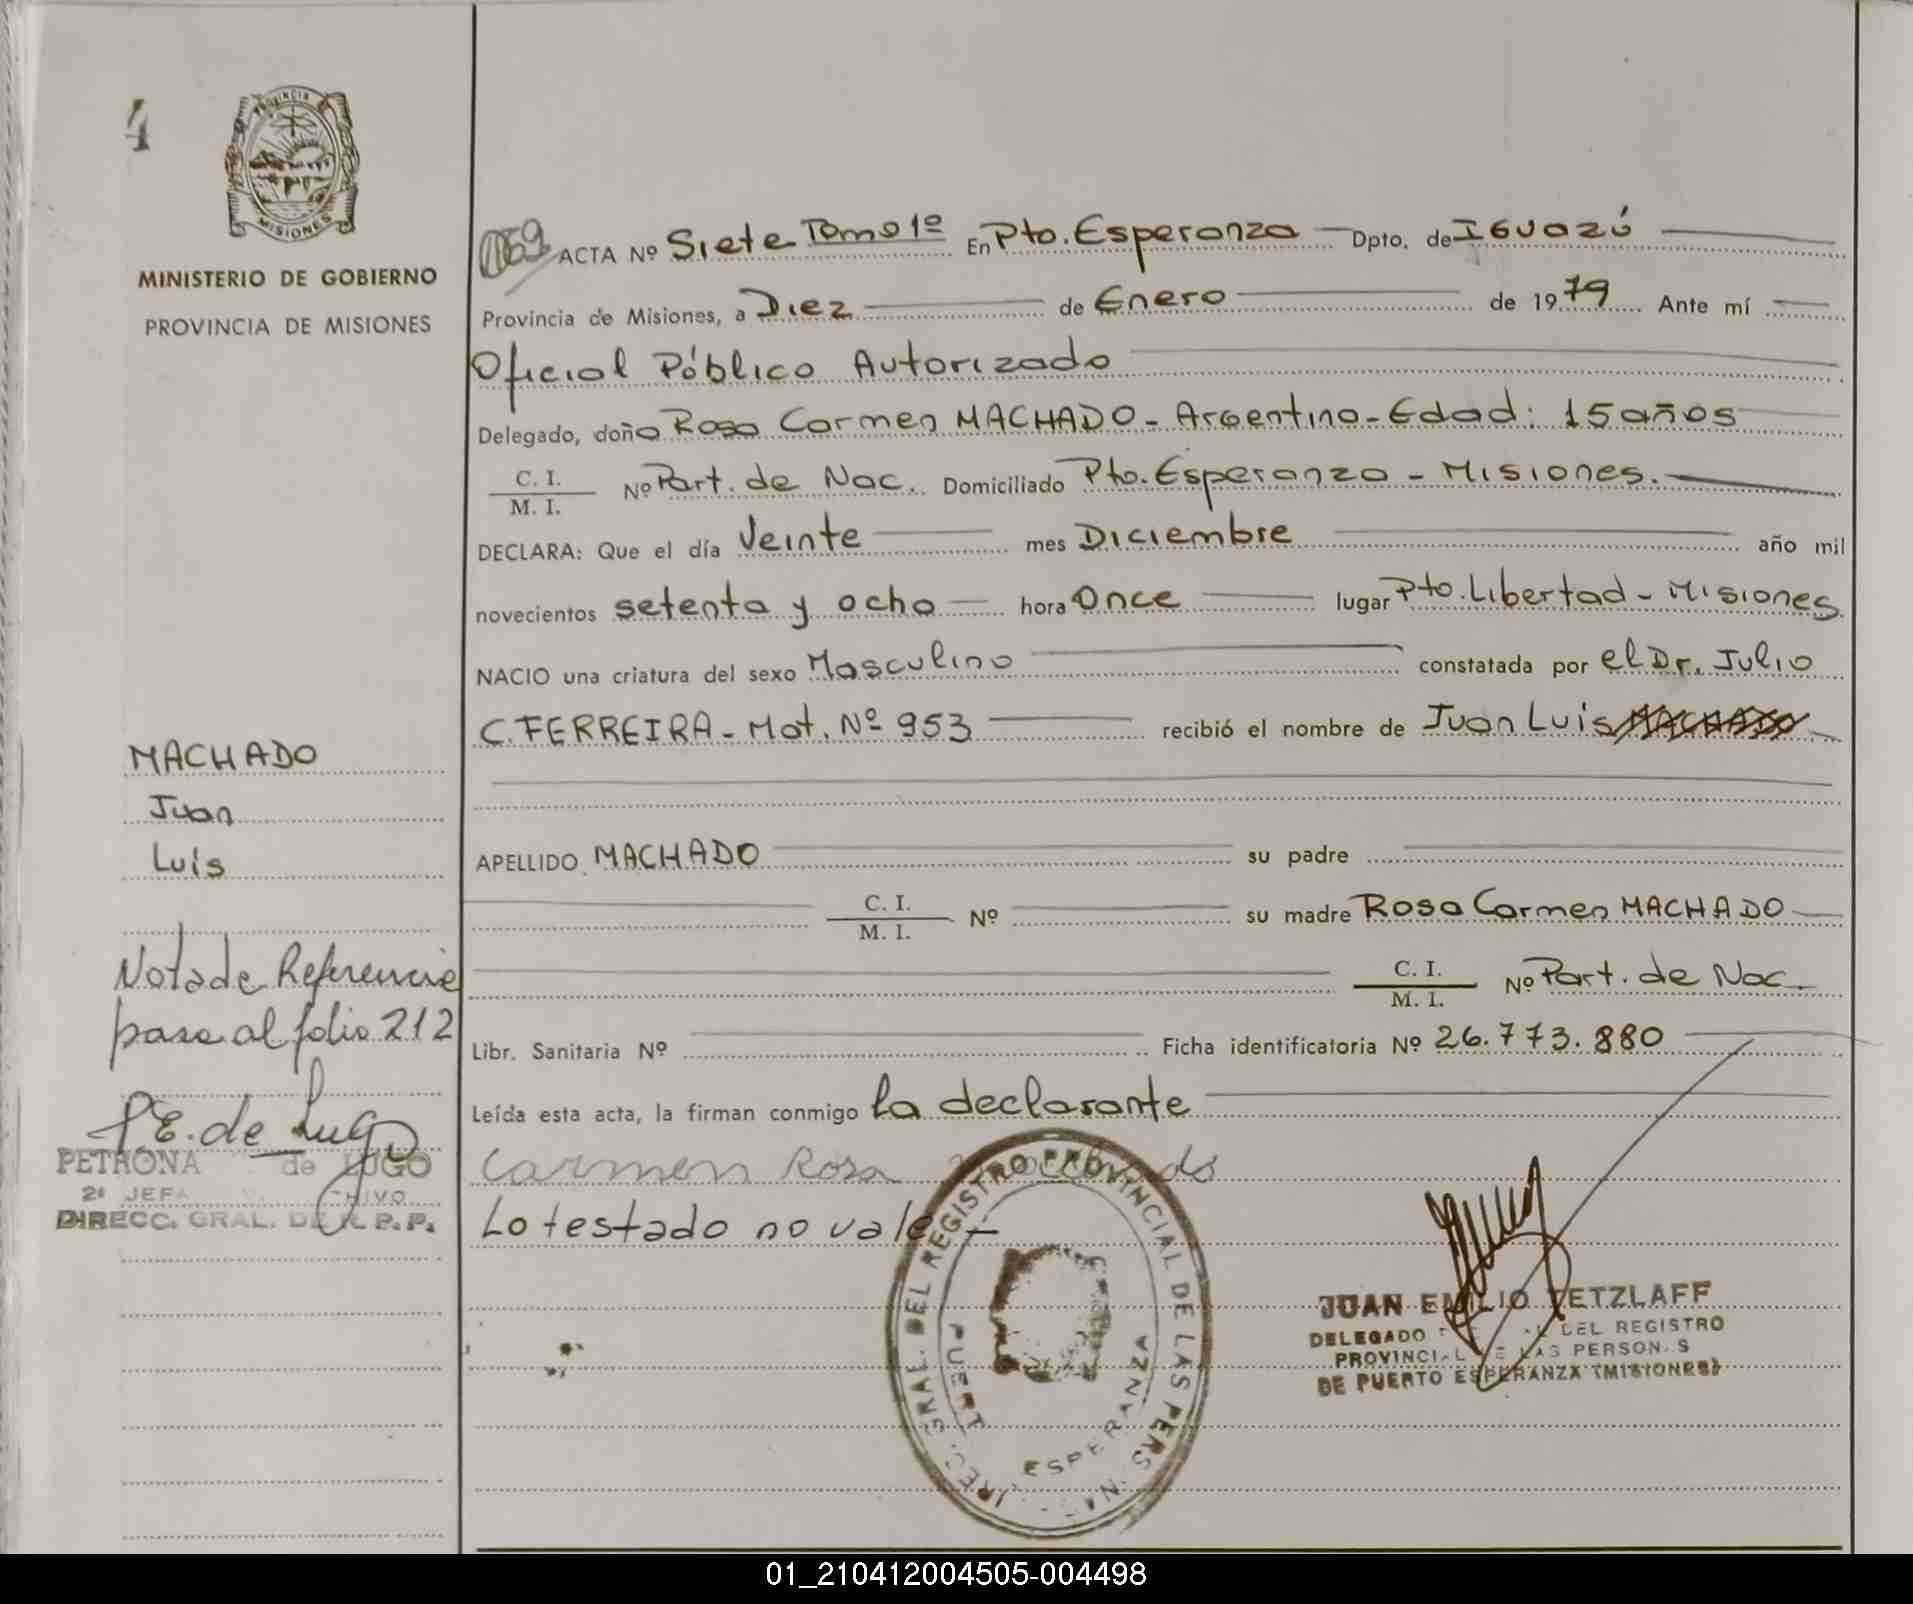 4
PROVINCIA
MISIONES
MINISTERIO DE GOBIERNO
PROVINCIA DE MISIONES
MACHADO
Juan
Luis
Nota de Referencia
pasa al folio 212
P E. de Lugo
PETRONA de LUGO
2º JEFA
DIRECC. GRAL. DE R.P.P.
ACTA Nº Siete Tomo 1º En Pto. Esperanza Dpto. de Iguazú
Provincia de Misiones, a Diez de Enero de 1979 Ante mí
Oficial Público Autorizado
Delegado, doña Rosa Carmen MACHADO - Argentina - Edad: 15 años
C. I.
M. I. Nº Part. de Nac. Domiciliado Pto. Esperanza - Misiones.
DECLARA: Que el día Veinte mes Diciembre año mil
novecientos setenta y ocho hora Once lugar Pto. Libertad - Misiones
NACIO una criatura del sexo Masculino constatada por el Dr. Julio
C. FERREIRA - Mat. Nº 953 recibió el nombre de Juan Luis MACHADO
APELLIDO MACHADO su padre
C. I.
M. I. Nº su madre Rosa Carmen MACHADO
C. I.
M. I. Nº Part. de Nac.
Libr. Sanitaria Nº Ficha identificatoria Nº 26.773.880
Leída esta acta, la firman conmigo la declarante
Carmen Rosa Machado
Lo testado no vale -
GRAL. DEL REGISTRO PROVINCIAL DE LAS PERS
PUERT ESPERANZA
JUAN EMILIO TETZLAFF
DELEGADO DEL REGISTRO
PROVINCIAL DE LAS PERSONAS
DE PUERTO ESPERANZA (MISIONES)
01_210412004505-004498